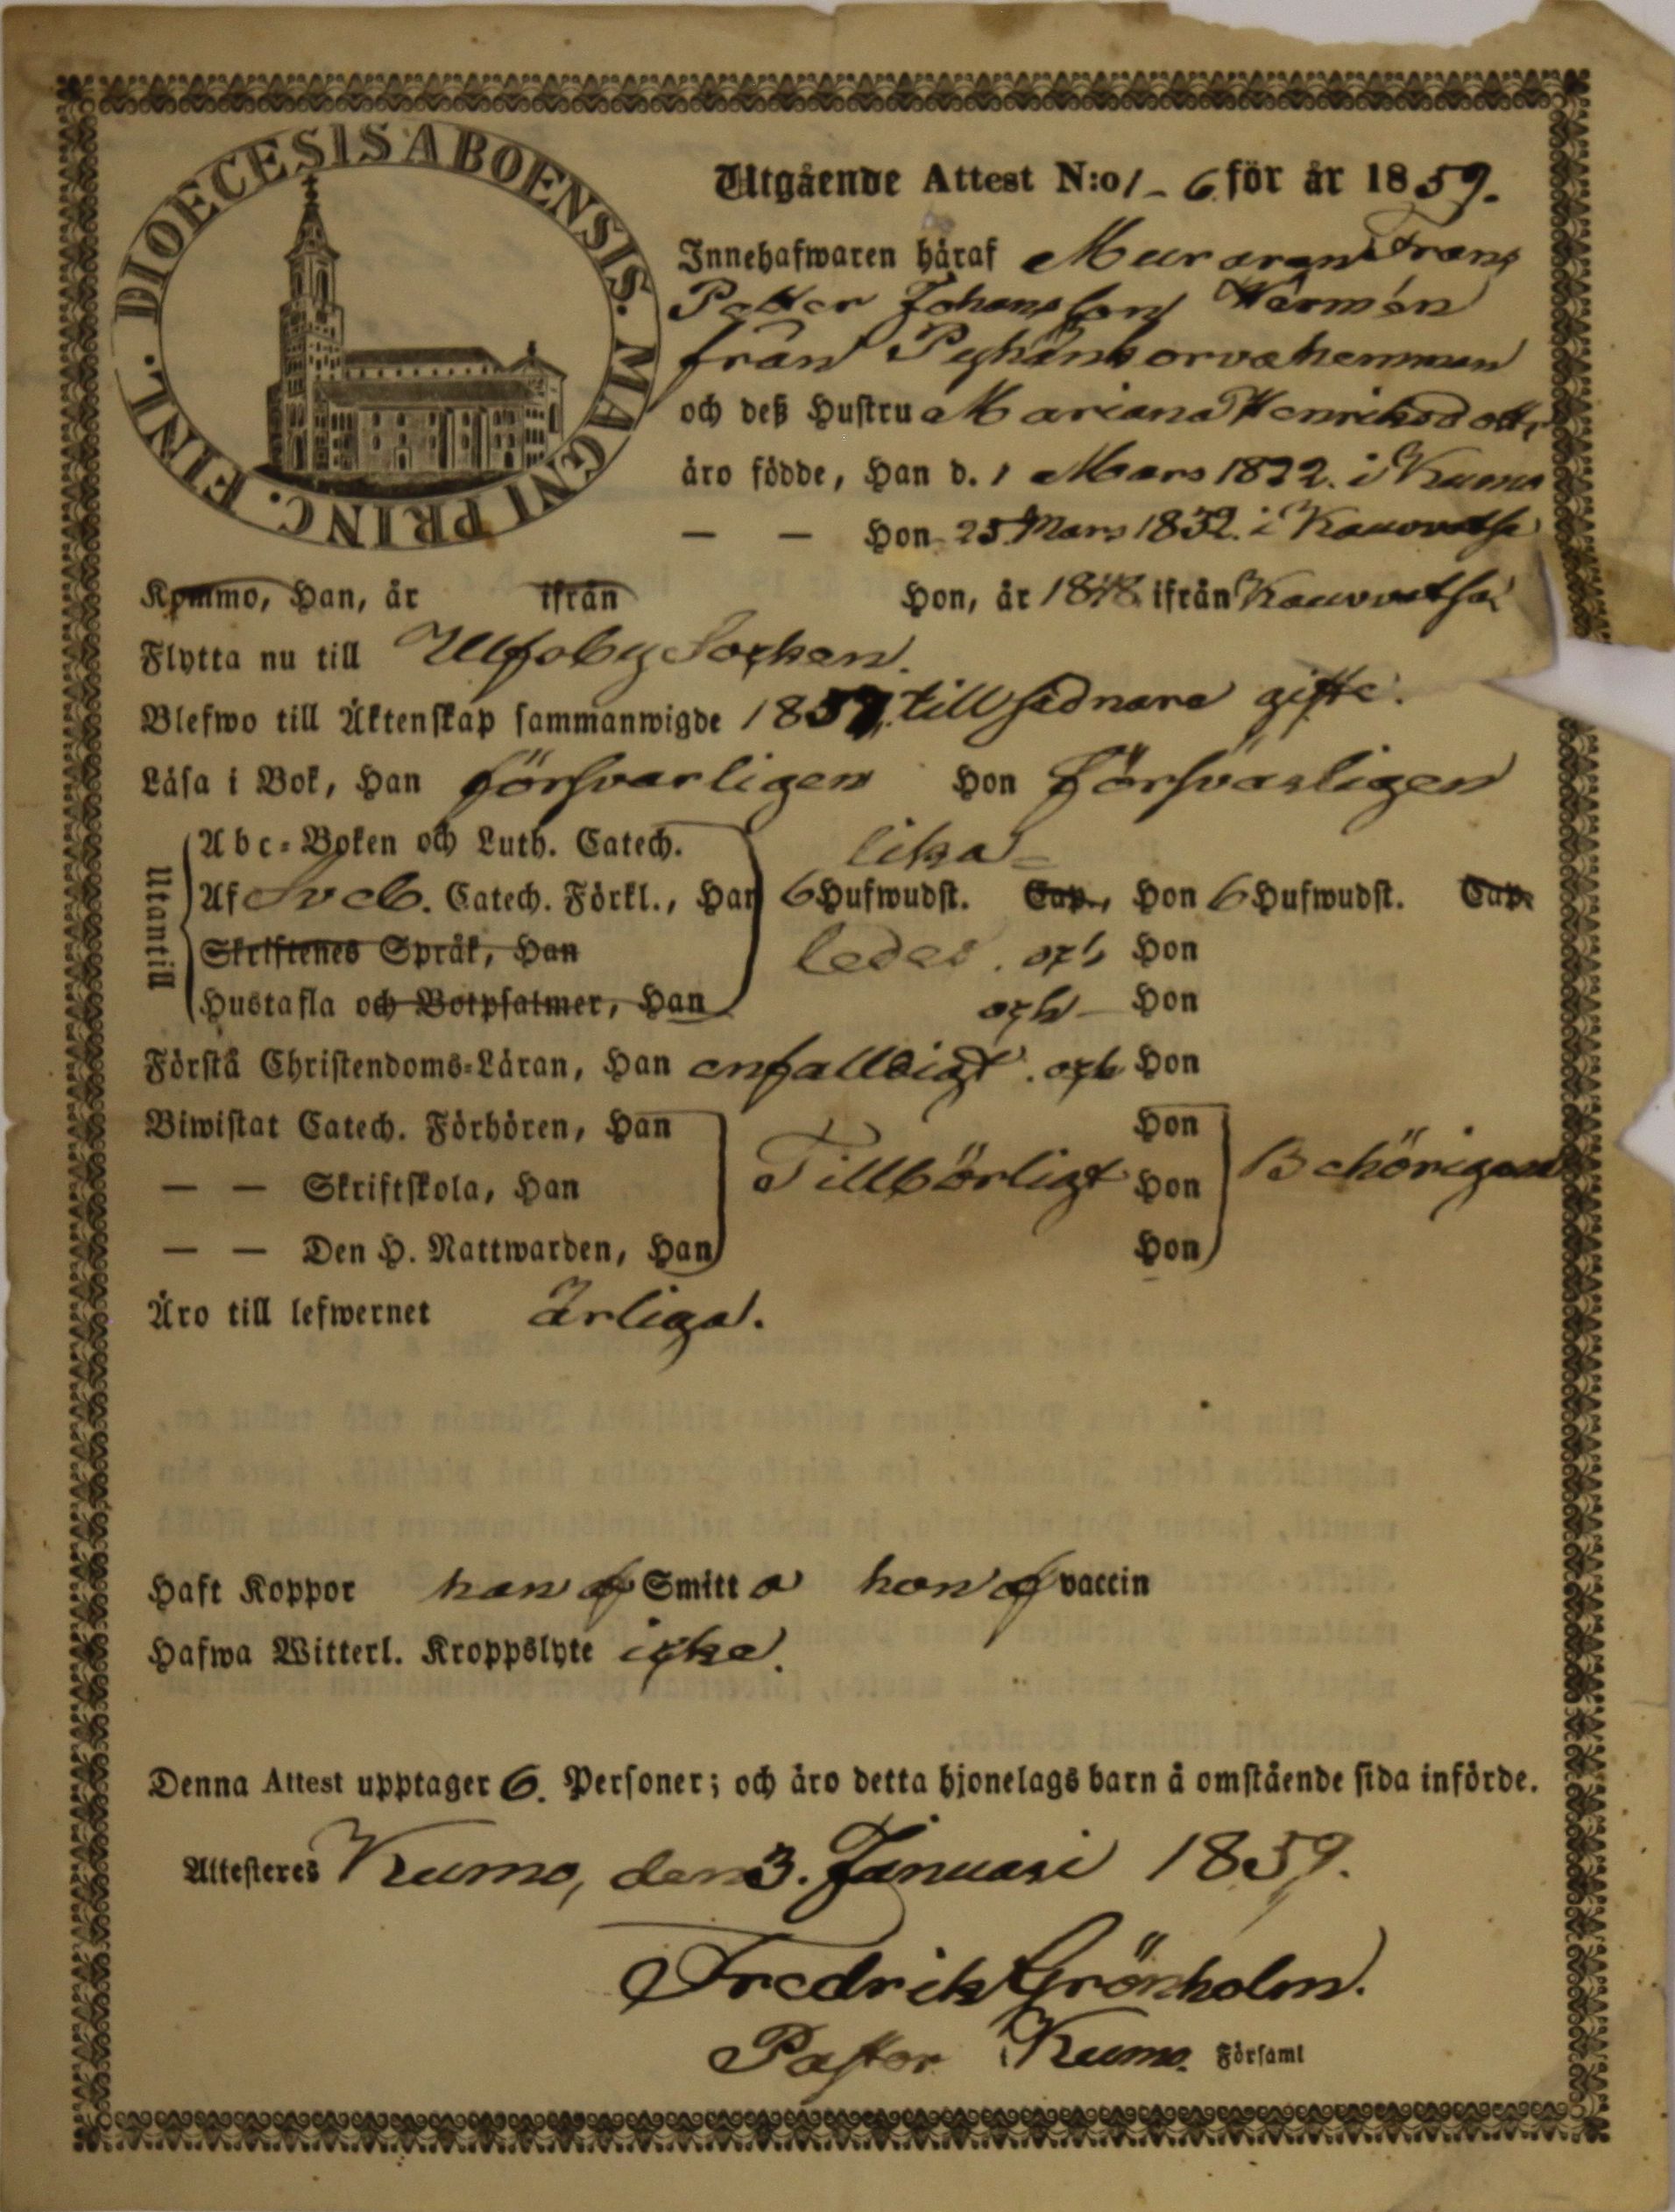 DIOECESIS ABOENSIS. MAGNI PRINC. FINL.
Utgående Attest N:o 1-6 för år 1859.
Innehafwaren häraf Muraren Frans
Petter Johansson Hermén
från Pyhänkorva hemman
och deß Hustru Mariana Henriksdotter
äro födde, Han d. 1 Mars 1822. i Kumo
— — Hon 25 Mars 1832. i Kauvatsa
Kommo, Han, år ifrån Hon, år 1848 ifrån Kauvatsa
Flytta nu till Ulfsby Socken.
Blefwo till Äktenskap sammanwigde 1857. till sednare gifte.
Läsa i Bok, Han försvarligen Hon försvarligen
Utantill
Abc-Boken och Luth. Catech. lika-
Af Sveb. Catech. Förkl., Han 6 Hufwudst. Cap., Hon 6 Hufwudst. Cap.
Skriftenes Språk, Han ledes. och Hon
Hustafla och Botpsalmer, Han och — Hon
Förstå Christendoms-Läran, Han enfalldigt. och Hon
Biwistat Catech. Förhören, Han Hon
— — Skriftskola, Han Tillbörligt Hon Behörigen
— — Den H. Nattwarden, Han Hon
Äro till lefwernet ärliga.
Haft Koppor han af Smitta hon af vaccin
Hafwa Witterl. Kroppslyte icke.
Denna Attest upptager 6. Personer; och äro detta hjonelags barn å omstående sida införde.
Attesteres Kumo, den 3. Januari 1859.
Fredrik Grönholm.
Pastor i Kumo. Församl